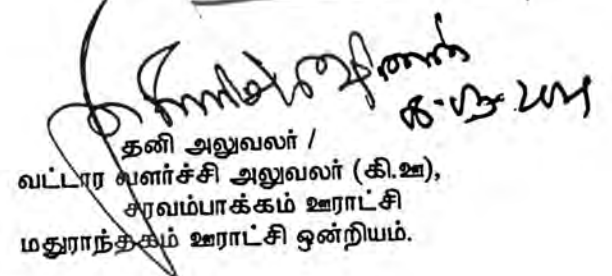 தனி அலுவலர் /
வட்டார வளர்ச்சி அலுவலர் (கி.ஊ),
சரவம்பாக்கம் ஊராட்சி
மதுராந்தகம் ஊராட்சி ஒன்றியம்.